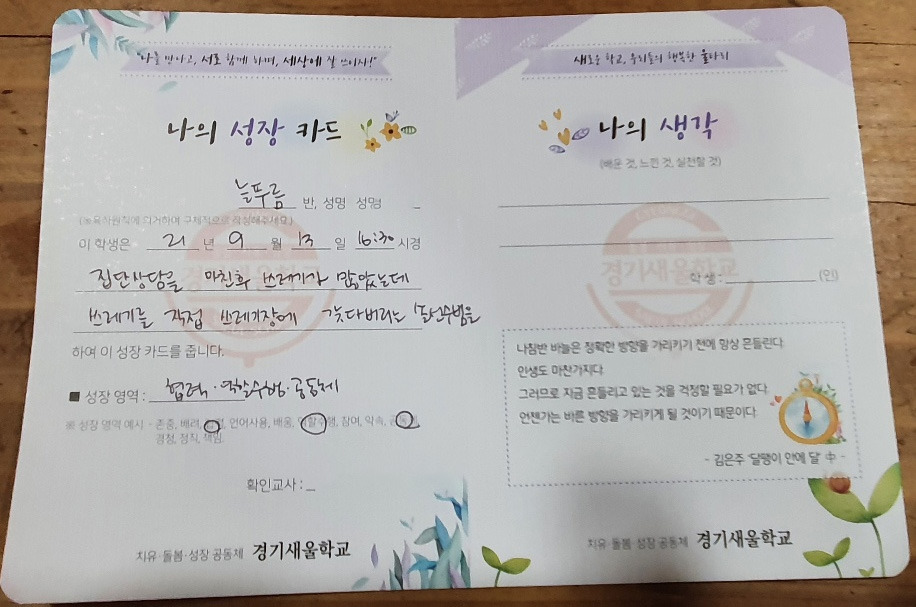 "나를 만나고, 서로 함께 하며, 세상에 잘 쓰이자!"
나의 성장 카드
늘푸름 반, 성명 성명
(※육하원칙에 의거하여 구체적으로 작성해주세요.)
이 학생은 21 년 9 월 13 일 16:30 시경
집단상담을 마친후 쓰레기가 많았는데
쓰레기를 직접 쓰레기장에 갖다버리는 솔선수범을
하여 이 성장 카드를 줍니다.
■ 성장 영역 : 협력·역할수행·공동체
※ 성장 영역 예시 - 존중, 배려, 협력, 언어사용, 배움, 역할수행, 참여, 약속, 공동체,
경청, 정직, 책임.
확인교사 : _
치유·돌봄·성장 공동체 경기새울학교
새로운 학교, 우리들의 행복한 울타리
나의 생각
(배운 것, 느낀 것, 실천할 것)
경기새울학교
학 생 : (인)
나침반 바늘은 정확한 방향을 가리키기 전에 항상 흔들린다.
인생도 마찬가지다.
그러므로 지금 흔들리고 있는 것을 걱정할 필요가 없다.
언젠가는 바른 방향을 가리키게 될 것이기 때문이다.
- 김은주 '달팽이 안에 달' 中 -
치유·돌봄·성장 공동체 경기새울학교